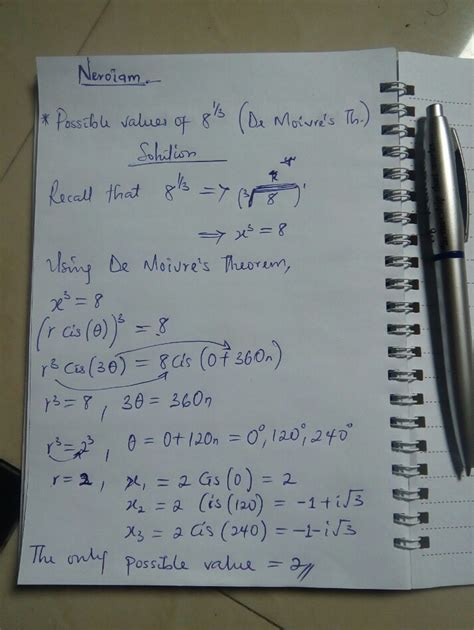 Neroiam
* Possible values of 8^1/3 (De Moivre's Th.)
Solution
Recall that 8^1/3 => (³√8)¹
=> x³ = 8
Using De Moivre's Theorem,
x³ = 8
(r Cis(θ))³ = 8
r³ Cis(3θ) = 8Cis(0+360n)
r³ = 8, 3θ = 360n
r³ = 2³, θ = 0+120n = 0°, 120°, 240°
r = 2, x₁ = 2 Cis(0) = 2
x₂ = 2 Cis(120) = -1+i√3
x₃ = 2 Cis(240) = -1-i√3
The only possible value = 2//